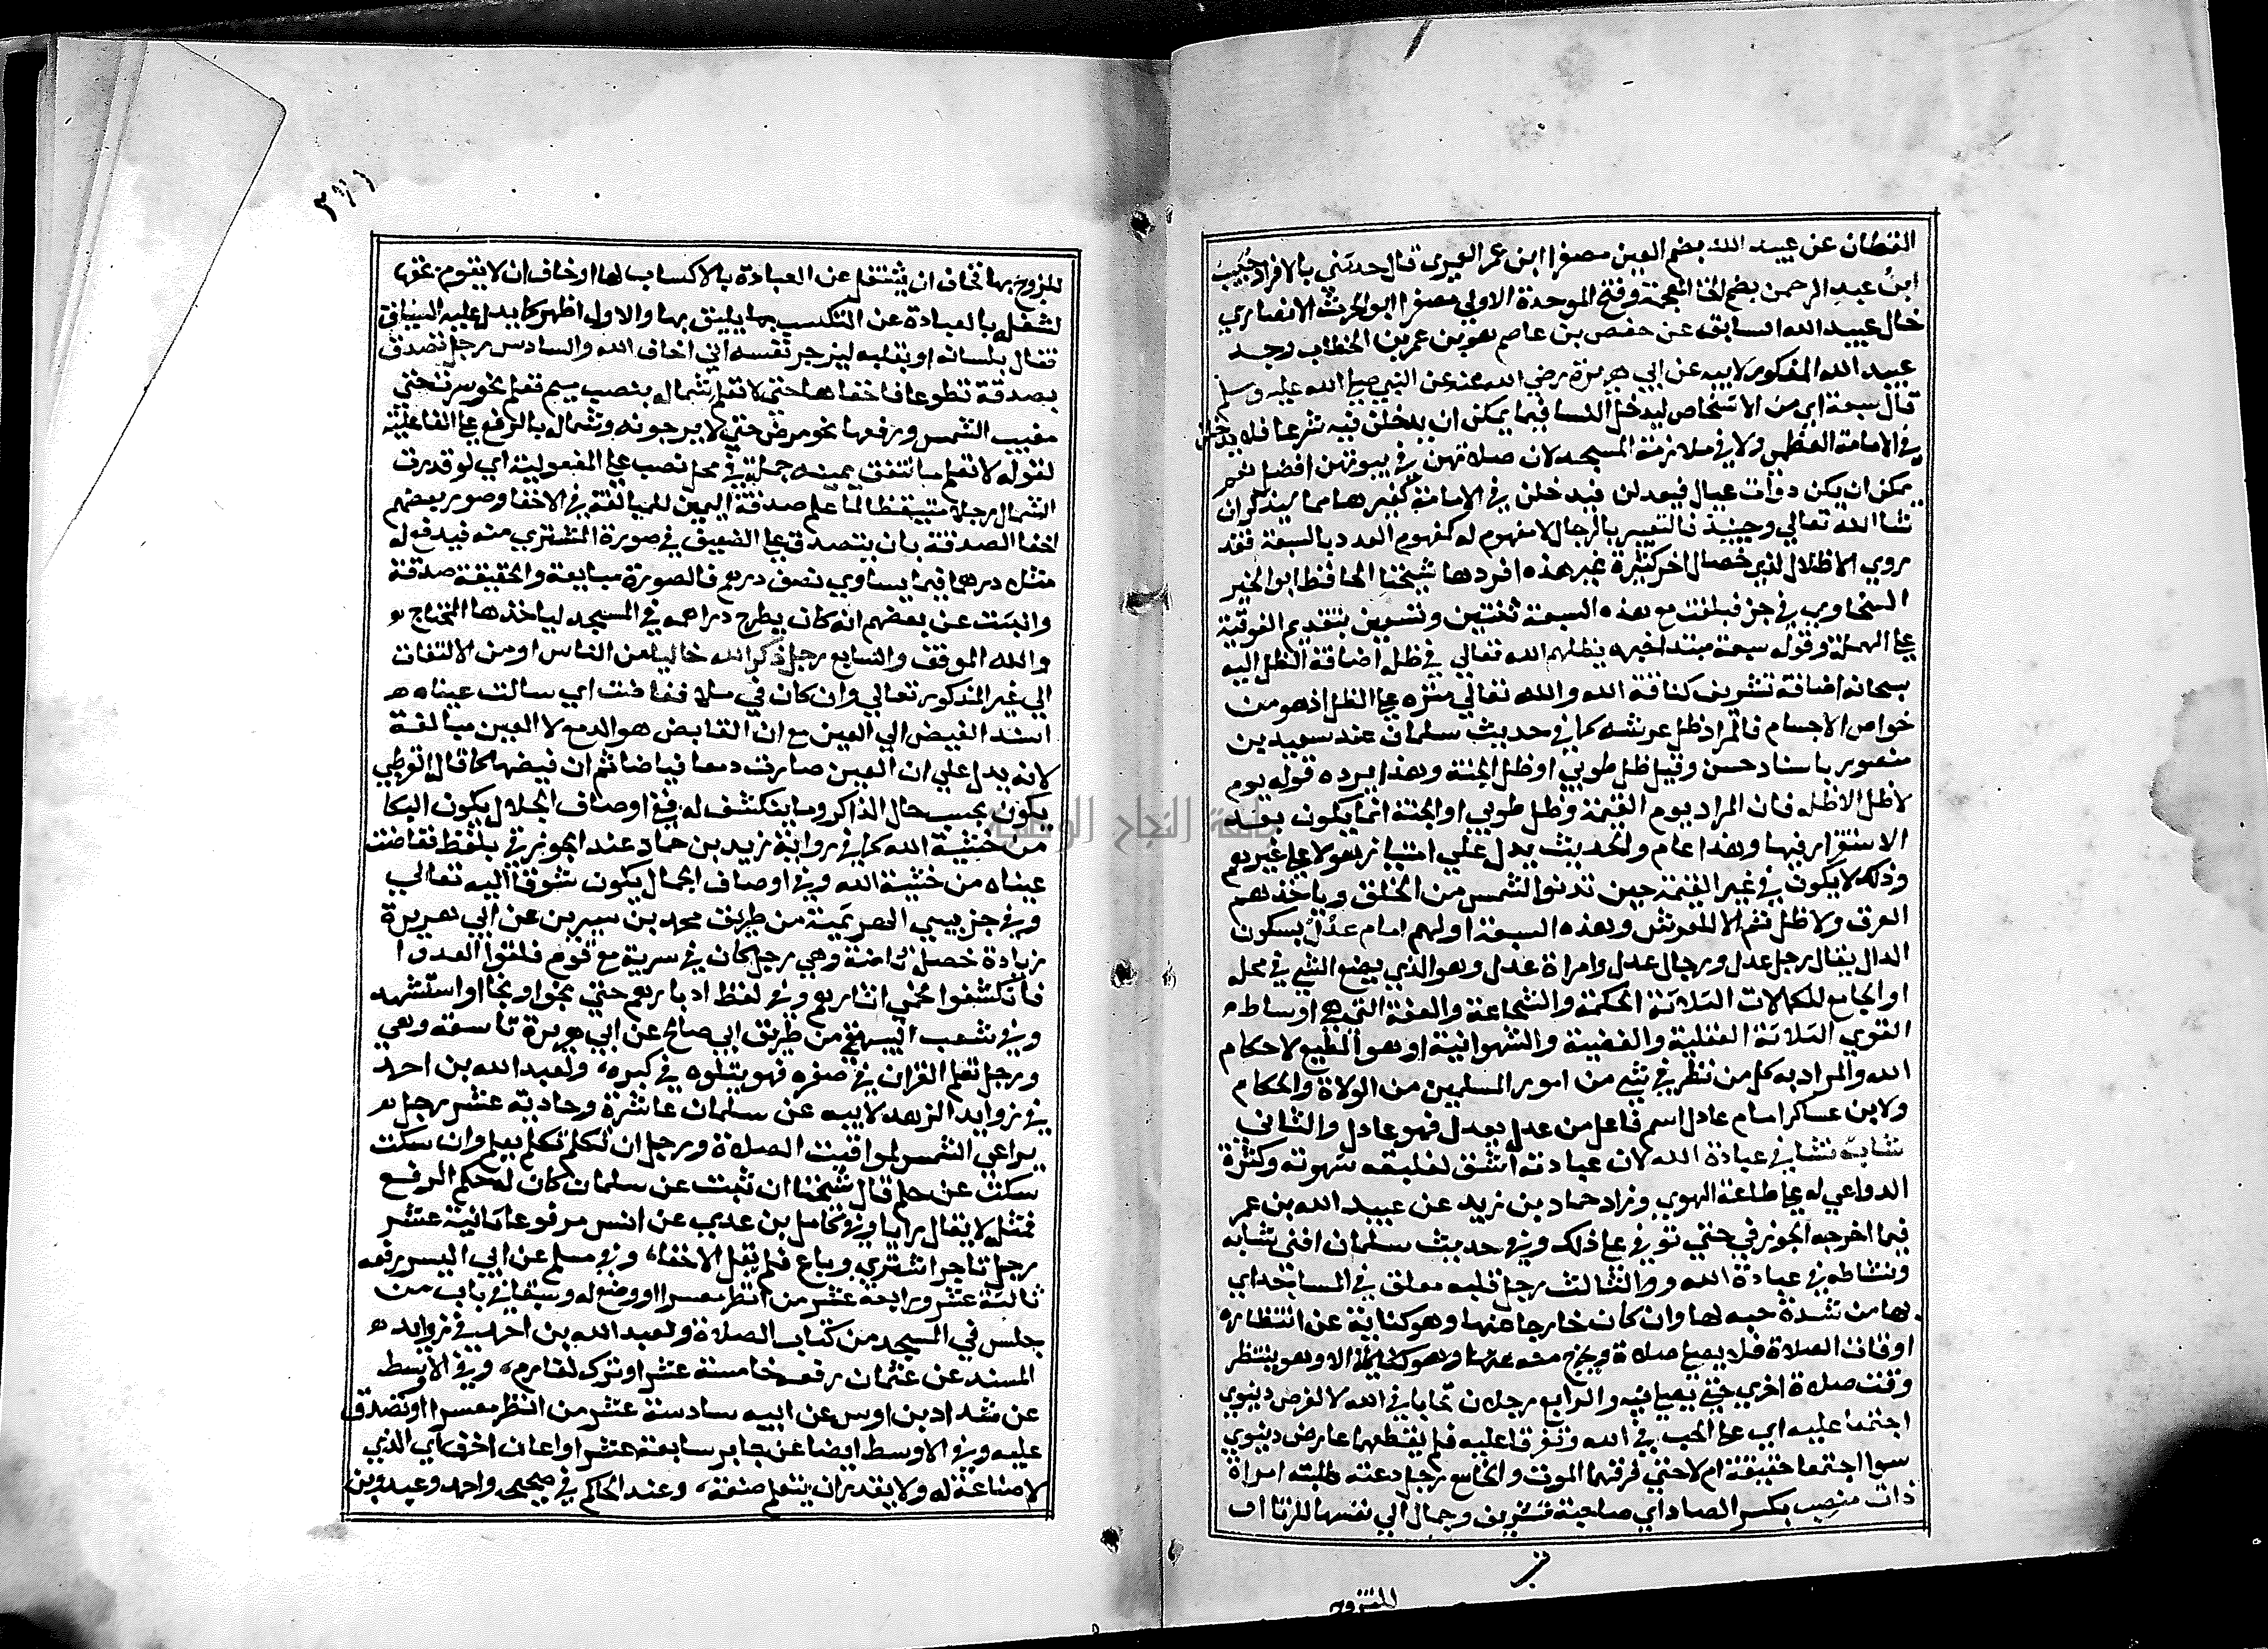 القطان عن عبيد الله بضم العين مصغرا ابن عمر العمرى قال حدثني بالافراد خبيب
ابن عبد الرحمن بضم الخا المعجمة وفتح الموحدة الاولي مصغرا ابو الحرث الانصاري
خال عبيد الله السابق عن حفص بن عاصم هو بن عمر بن الخطاب وجد
عبيد الله المذكور لابيه عن ابي هريرة رضي الله عنه عن النبي صلى الله عليه وسلم
قال سبعة اي من الاشخاص ليدخل النسا فيما يمكن ان يدخلن فيه شرعا فلا يدخلن
في الامامة العظمى ولا في ملازمة المسجد لان صلاتهن في بيوتهن افضل نعم
يمكن ان يكن ذوات عيال فيعدلن فيدخلن في الامامة كغيرها مما سيذكر ان
شا الله تعالي وحينيذ فالتعبير بالرجال لا مفهوم له كمفهوم العدد بالسبعة فقد
روي الاظلال لذي خصال اخر كثيرة غير هذه افردها شيخنا الحافظ ابو الخير
السخاوي في جز فبلغت مع هذه السبعة ثنتين وتسعين بتقديم الفوقية
على المهملة وقوله سبعة مبتدا خبره يظلهم الله تعالي في ظله اضافة الظل اليه
سبحانه اضافة تشريف كناقة الله والله تعالي منزه عن الظل اذ هو من
خواص الاجسام فالمراد ظل عرشه كما في حديث سلمان عند سعيد بن
منصور باسناد حسن وقيل ظل طوبي او ظل الجنة وهذا يرده قوله يوم
لا ظل الا ظله فان المراد يوم القيمة وظل طوبي او الجنة انما يكون بعد
الاستقرار فيها وهذا عام والحديث يدل علي امتياز هولا على غيرهم
وذلك لا يكون في غير القيمة حين تدنوا الشمس من الخلق وياخذهم
العرق ولا ظل ثم الا للعرش وهذه السبعة اولهم امام عدل بسكون
الدال يقال رجل عدل ورجال عدل وامراة عدل وهو الذي يضع الشي في محله
او الجامع للكمالات الثلاثة الحكمة والشجاعة والعفة التي هي اوساط
القوي الثلاثة العقلية والغضبية والشهوانية او هو المطيع لاحكام
الله والمراد به كل من نظر في شي من امور المسلمين من الولاة والحكام
ولابن عساكر امام عادل اسم فاعل من عدل يعدل فهو عادل والثاني
شاب نشا في عبادة الله لان عبادته اشق لغلبة شهوته وكثرة
الدواعي له على طاعة الهوي وزاد حماد بن زيد عن عبيد الله بن عمر
فيما اخرجه الجوزقي حتي توفي على ذلك وفي حديث سلمان افنى شبابه
ونشاطه في عبادة الله والثالث رجل قلبه معلق في المساجد اي
بها من شدة حبه لها وان كان خارجا عنها وهو كناية عن انتظاره
اوقات الصلاة فلا يصلي صلاة ويخرج منه الا وهو ينتظر
وقت صلاة اخري حتى يصلي فيه والرابع رجلان تحابا في الله لا لغرض دنيوي
اجتمعا عليه اي على الحب في الله وتفرقا عليه فلم يقطعهما عارض دنيوي
سوا اجتمعا حقيقة ام لا حتي فرقهما الموت والخامس رجل دعته طلبته امراة
ذات منصب بكسر الصاد اي صاحبة شريف وجمال الي نفسها للزنا او
للتزوج
للتزوج بها فخاف ان يشتغل عن العبادة بالاكتساب لها او خاف ان لا يقوم بحقها
لشغله بالعبادة عن التكسب بما يليق بها والاول اظهر كما يدل عليه السياق
فقال بلسانه او بقلبه ليزجر نفسه اني اخاف الله والسادس رجل تصدق
بصدقة تطوعا فاخفاها حتى لا تعلم شماله بنصب ميم تعلم نحو سرت حتي
مغيب الشمس ورفعها نحو مرض حتي لا يرجونه وشماله بالرفع على الفاعلية
لقوله لا تعلم ما تنفق يمينه جملة في محل نصب على المفعولية اي لو قدرت
الشمال رجلا متيقظا لما علم صدقة اليمين للمبالغة في الاخفا وصور بعضهم
اخفا الصدقة بان يتصدق على الضعيف في صورة المشتري منه فيدفع له
مثلا درهما فيما يساوي نصف درهم فالصورة مبايعة والحقيقة صدقة
وانبئت عن بعضهم انه كان يطرح دراهمه في المسجد لياخذها المحتاج
والله الموفق والسابع رجل ذكر الله خاليا من الناس او من الالتفات
الي غير المذكور تعالي وان كان في ملا ففاضت اي سالت عيناه
اسند الفيض الي العين مع ان الفايض هو الدمع لا العين مبالغة
لانه يدل علي ان العين صارت دمعا فياضا ثم ان فيضها كما قال القرطبي
يكون بحسب حال الذاكر وما ينكشف له ففي اوصاف الجلال يكون البكا
من خشية الله كما في رواية زيد بن حماد عند الجوزقي بلفظ ففاضت
عيناه من خشية الله وفي اوصاف الجمال يكون شوقا اليه تعالي
وفي جز بيبي الهرثمية من طريق محمد بن سيرين عن ابي هريرة
زيادة خصلة ثامنة وهي رجل كان في سرية مع قوم فلقوا العدوا
فانكشفوا فحمي اثارهم وفي لفظ ادبارهم حتي نجوا ونجا او استشهد
وفي شعب البيهقي من طريق ابي صالح عن ابي هريرة تاسعه وهي
ورجل تعلم القران في صغره فهو يتلوه في كبره ولعبد الله بن احمد
في زوايد الزهد لابيه عن سلمان عاشرة وحادية عشر رجل
يراعي الشمس لمواقيت الصلاة ورجل ان تكلم تكلم بعلم وان سكت
سكت عن حلم قال شيخنا ان ثبت عن سلمان كان له حكم الرفع
فمثله لا يقال برايه وفي كامل بن عدي عن انس مرفوعا ثانية عشر
رجل تاجر اشترى وباع فلم يقل الا حقا وفي مسلم عن ابي اليسر رفعه
ثالثة عشر ورابعة عشر من انظر معسرا او وضع له وسبقا في باب من
جلس في المسجد من كتاب الصلاة ولعبد الله بن احمد في زوايد
المسند عن عثمان رفعه خامسة عشر او ترك لغارم وفي الاوسط
عن شداد بن اوس عن ابيه سادسة عشر من انظر معسرا او تصدق
عليه وفي الاوسط ايضا عن جابر سابعة عشر او اعان اخرق اي الذي
لا صناعة له ولا يقدر ان يتعلم صنعة وعند الحاكم في صحيحه واحمد وعبد بن